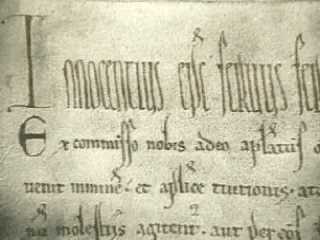 Innocentius epc seruus
Ex commisso nobis adeo aplatus
uenit minime et aplice tuitionis
molestiis agitent. aut per